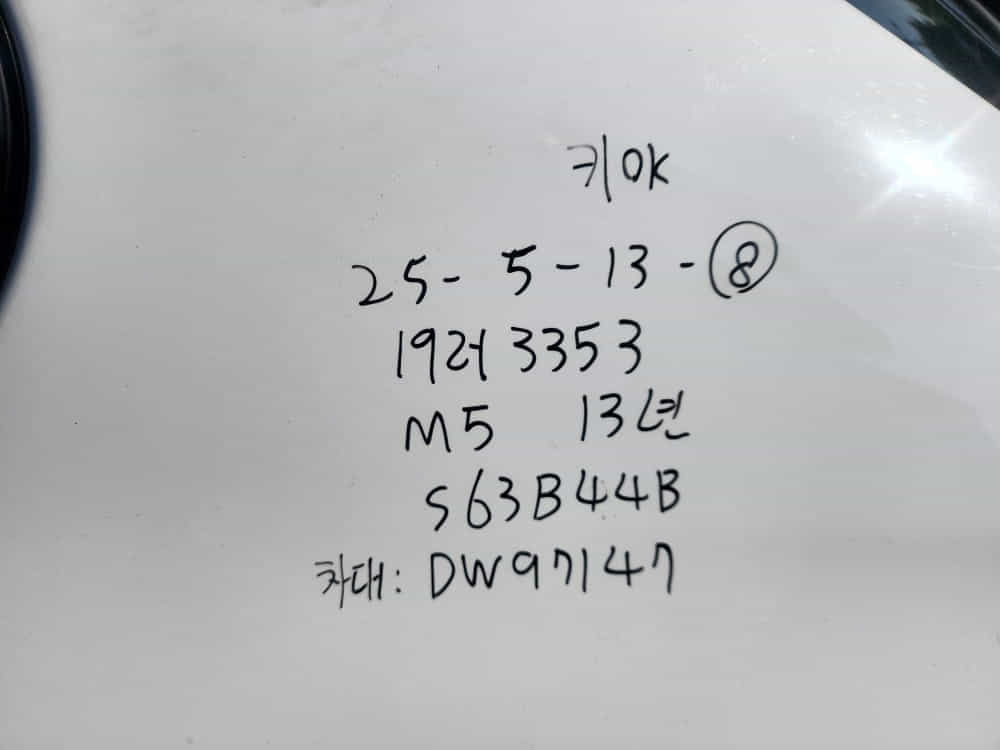 키OK
25-5-13-⑧
19러3353
M5 13년
S63B44B
차대: DW97147